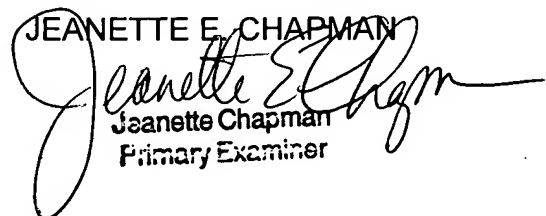 JEANETTE E. CHAPMAN
Jeanette E Chapm
Jeanette Chapman
Primary Examiner